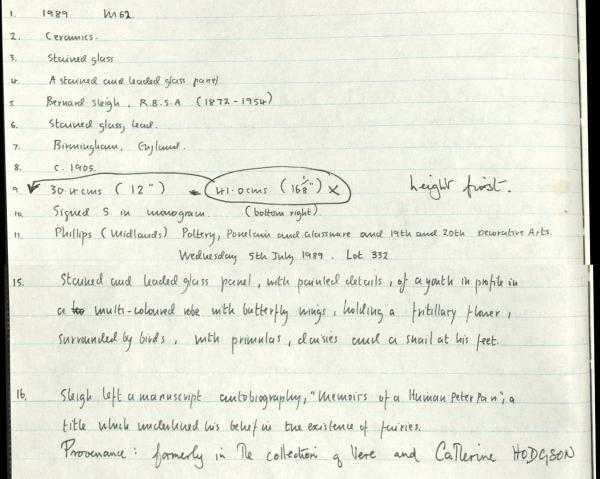 1. 1989 M62
2. Ceramics.
3. Stained glass
4. A stained and leaded glass panel
5. Bernard Sleigh, R.B.S.A (1872-1954)
6. Stained glass, lead.
7. Birmingham, England.
8. c. 1905.
9. 30.4cms (12") 41.0cms (16 1/8") x height first.
10. Signed S in monogram. (bottom right).
11. Phillips (Midlands) Pottery, Porcelain and Glassware and 19th and 20th Decorative Arts.
Wednesday 5th July 1989. Lot 332
15. Stained and leaded glass panel, with painted details, of a youth in profile in
a multi-coloured robe with butterfly wings, holding a fritillary flower,
surrounded by birds, with primulas, daisies and a snail at his feet.
16. Sleigh left a manuscript autobiography, "Memoirs of a Human Peter Pan", a
title which underlined his belief in the existence of fairies.
Provenance: formerly in the collection of Vere and Catherine HODGSON